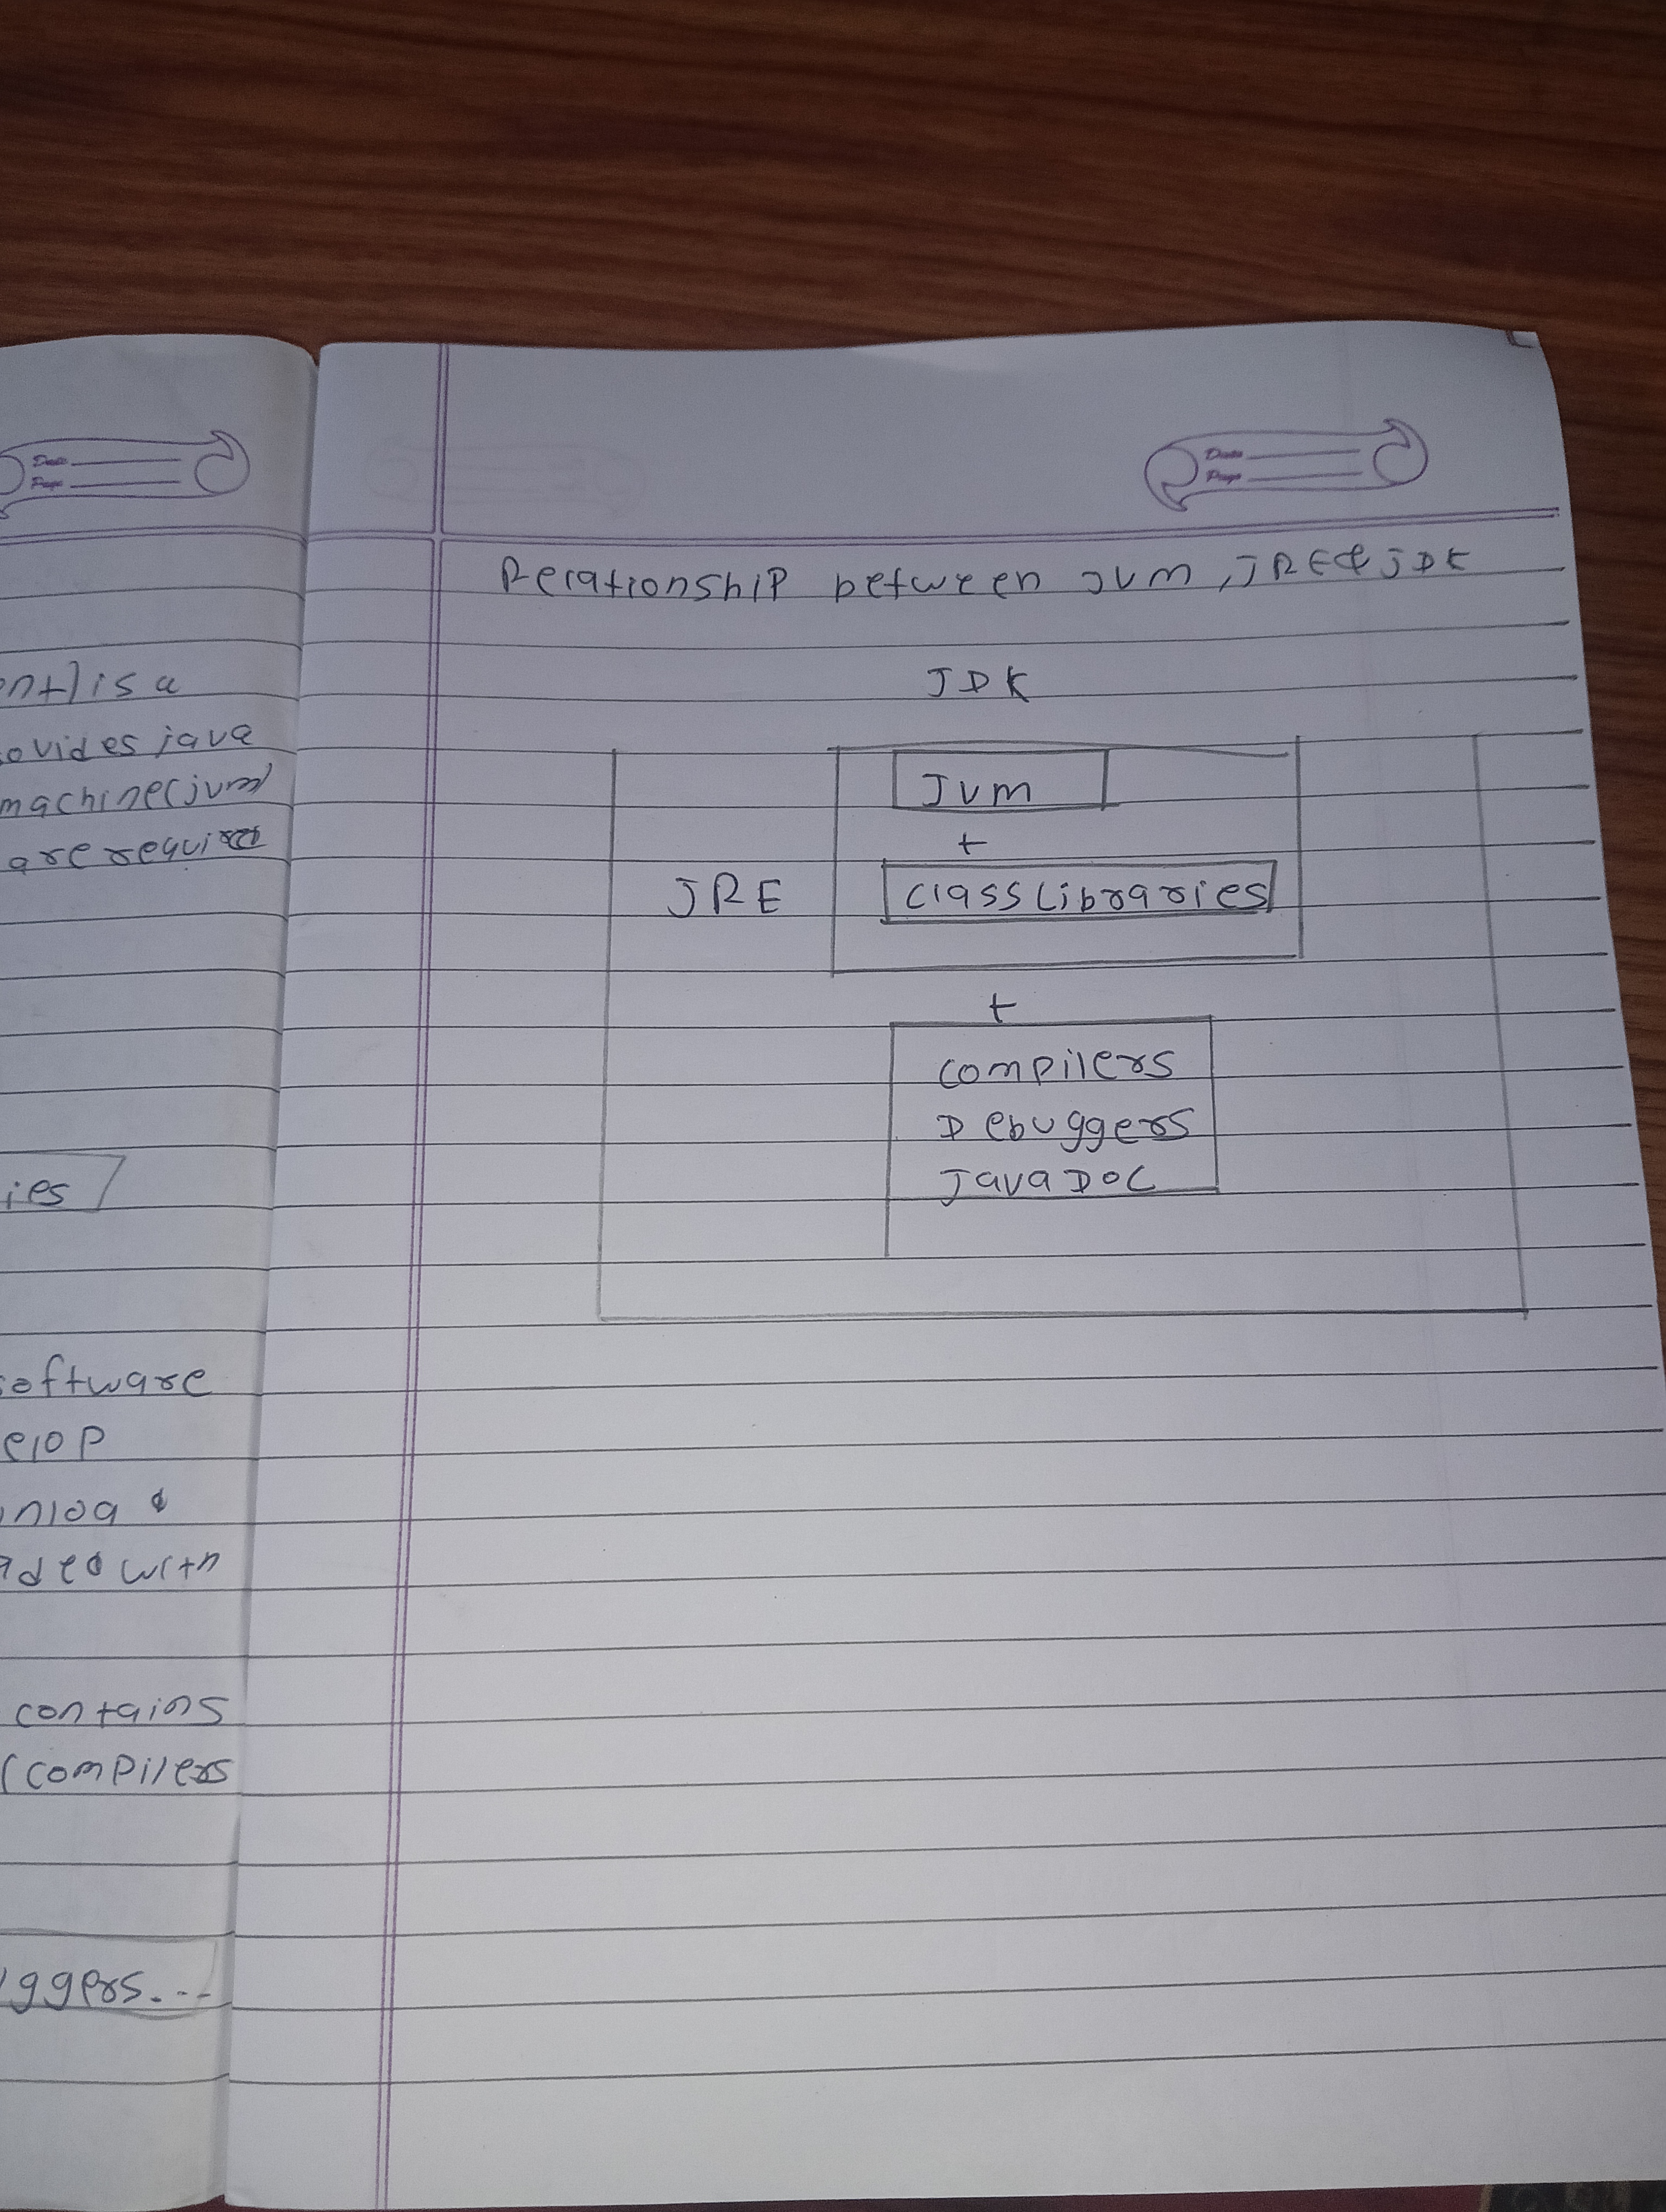 Date
Page
ent) is a
ovides java
machine(jvm)
are require
ies
software
elop
nlog &
aded with
contains
(compilers
ggers...
Date
Page
Relationship between JVM, JRE & JDK
JDK
JVM
+
JRE
Class Libraries
+
compilers
Debuggers
Java DOC